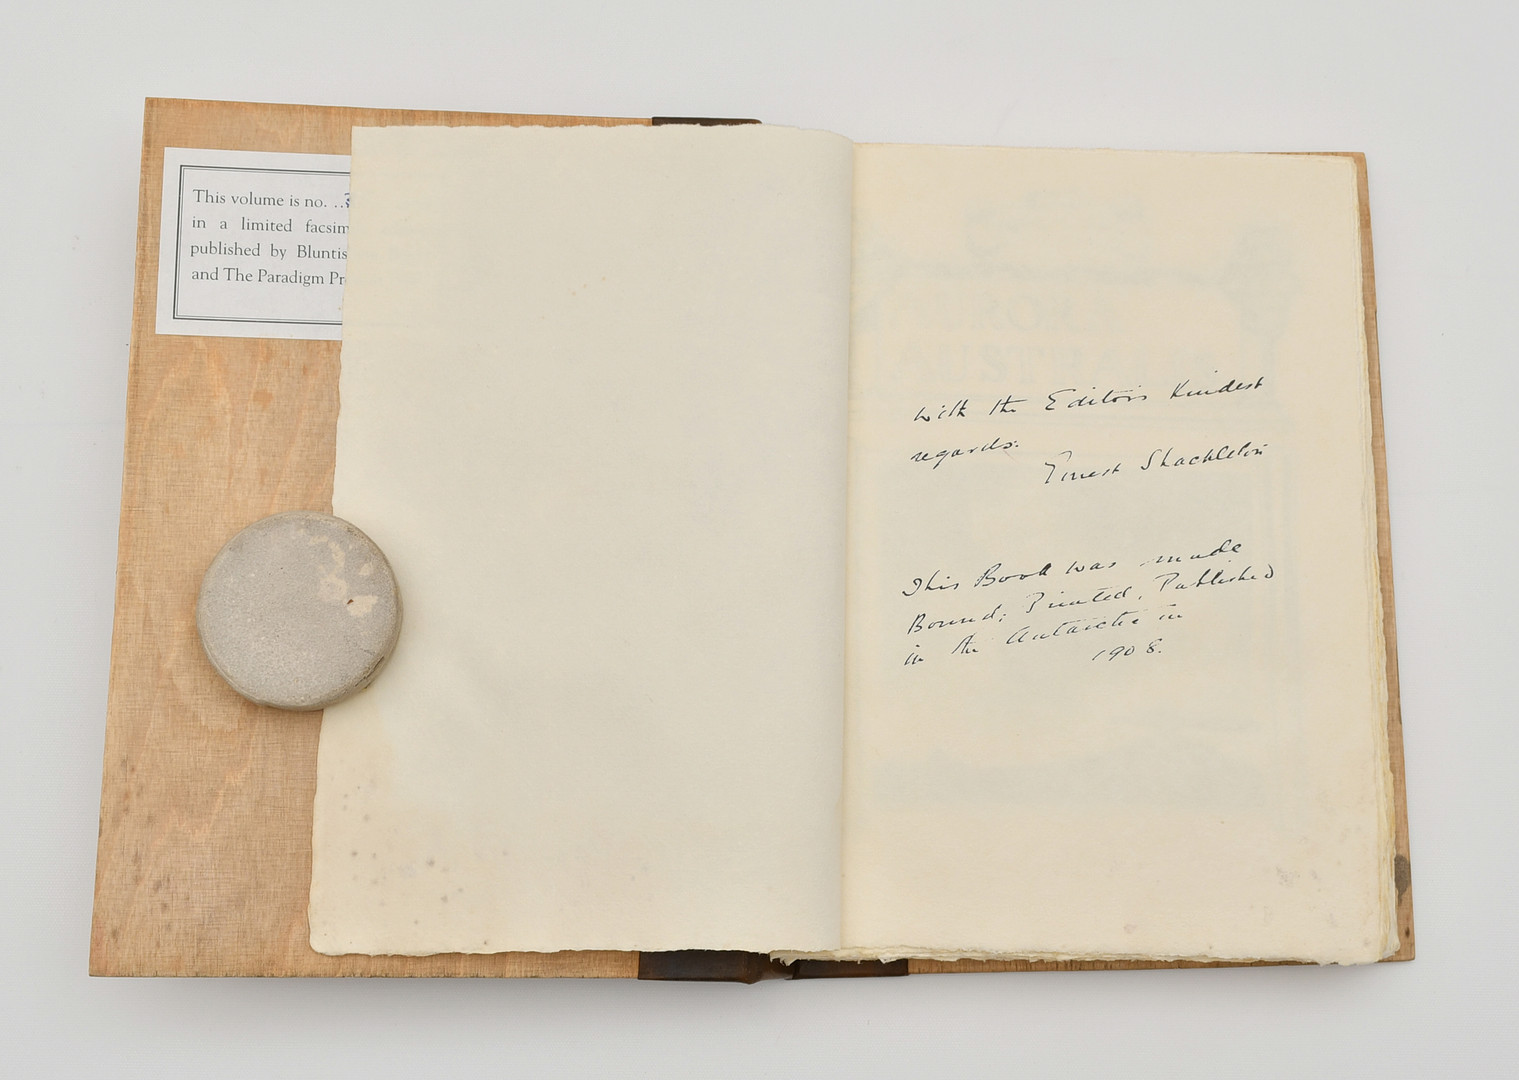 This volume is no. ..
in a limited facsim
published by Bluntis
and The Paradigm Pr
with the Editors Kindest
regards.
Ernest Shackleton
This Book was made
Bound; Printed, Published
in the Antarctic in
1908.